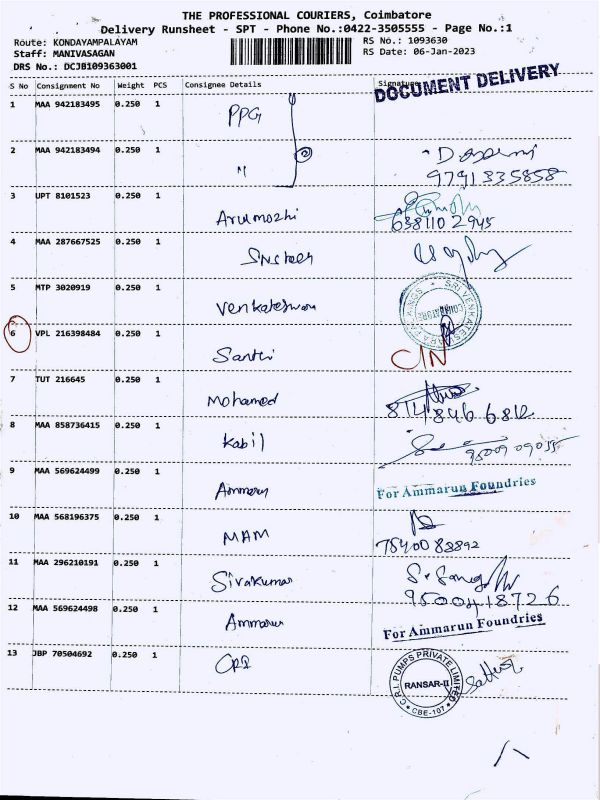 THE PROFESSIONAL COURIERS, Coimbatore
Delivery Runsheet - SPT - Phone No.:0422-3505555 - Page No.:1
Route: KONDAYAMPALAYAM
RS No.: 1093630
Staff: MANIVASAGAN
RS Date: 06-Jan-2023
DRS No.: DCJB109363001
S No Consignment No Weight PCS Consignee Details Signature
DOCUMENT DELIVERY
1 MAA 942183495 0.250 1 PPG
2 MAA 942183494 0.250 1 "
9791335858
3 UPT 8101523 0.250 1 Arumozhi
6381102945
4 MAA 287667525 0.250 1 SNS teer
5 MTP 3020919 0.250 1 Venkateswara
SRI VENKATESWARA PACKINGS COIMBATORE
6 VPL 216398484 0.250 1 Santhi C/N
7 TUT 216645 0.250 1 Mohamed
8148466812
8 MAA 858736415 0.250 1 Kabil
9500909055
9 MAA 569624499 0.250 1 Ammarun
For Ammarun Foundries
10 MAA 568196375 0.250 1 MAM
7540083892
11 MAA 296210191 0.250 1 Sivakumar
9500418726
12 MAA 569624498 0.250 1 Ammarun
For Ammarun Foundries
13 JBP 70504692 0.250 1 CRI
C.R.I. PUMPS PRIVATE LIMITED
RANSAR-II
CBE-107